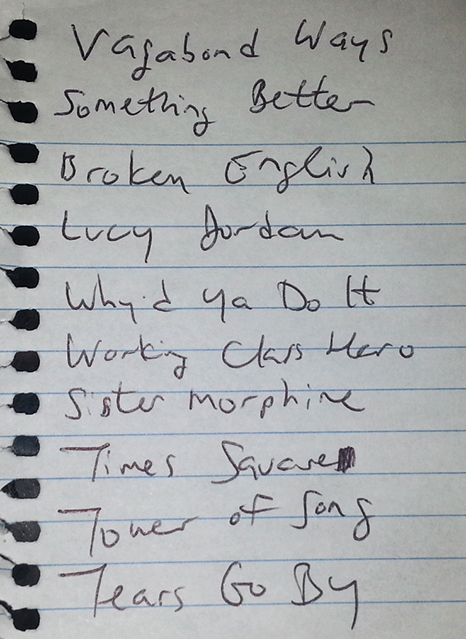 Vagabond Ways
Something Better
Broken English
Lucy Jordan
Why'd Ya Do It
Working Class Hero
Sister Morphine
Times Square
Tower of Song
Tears Go By